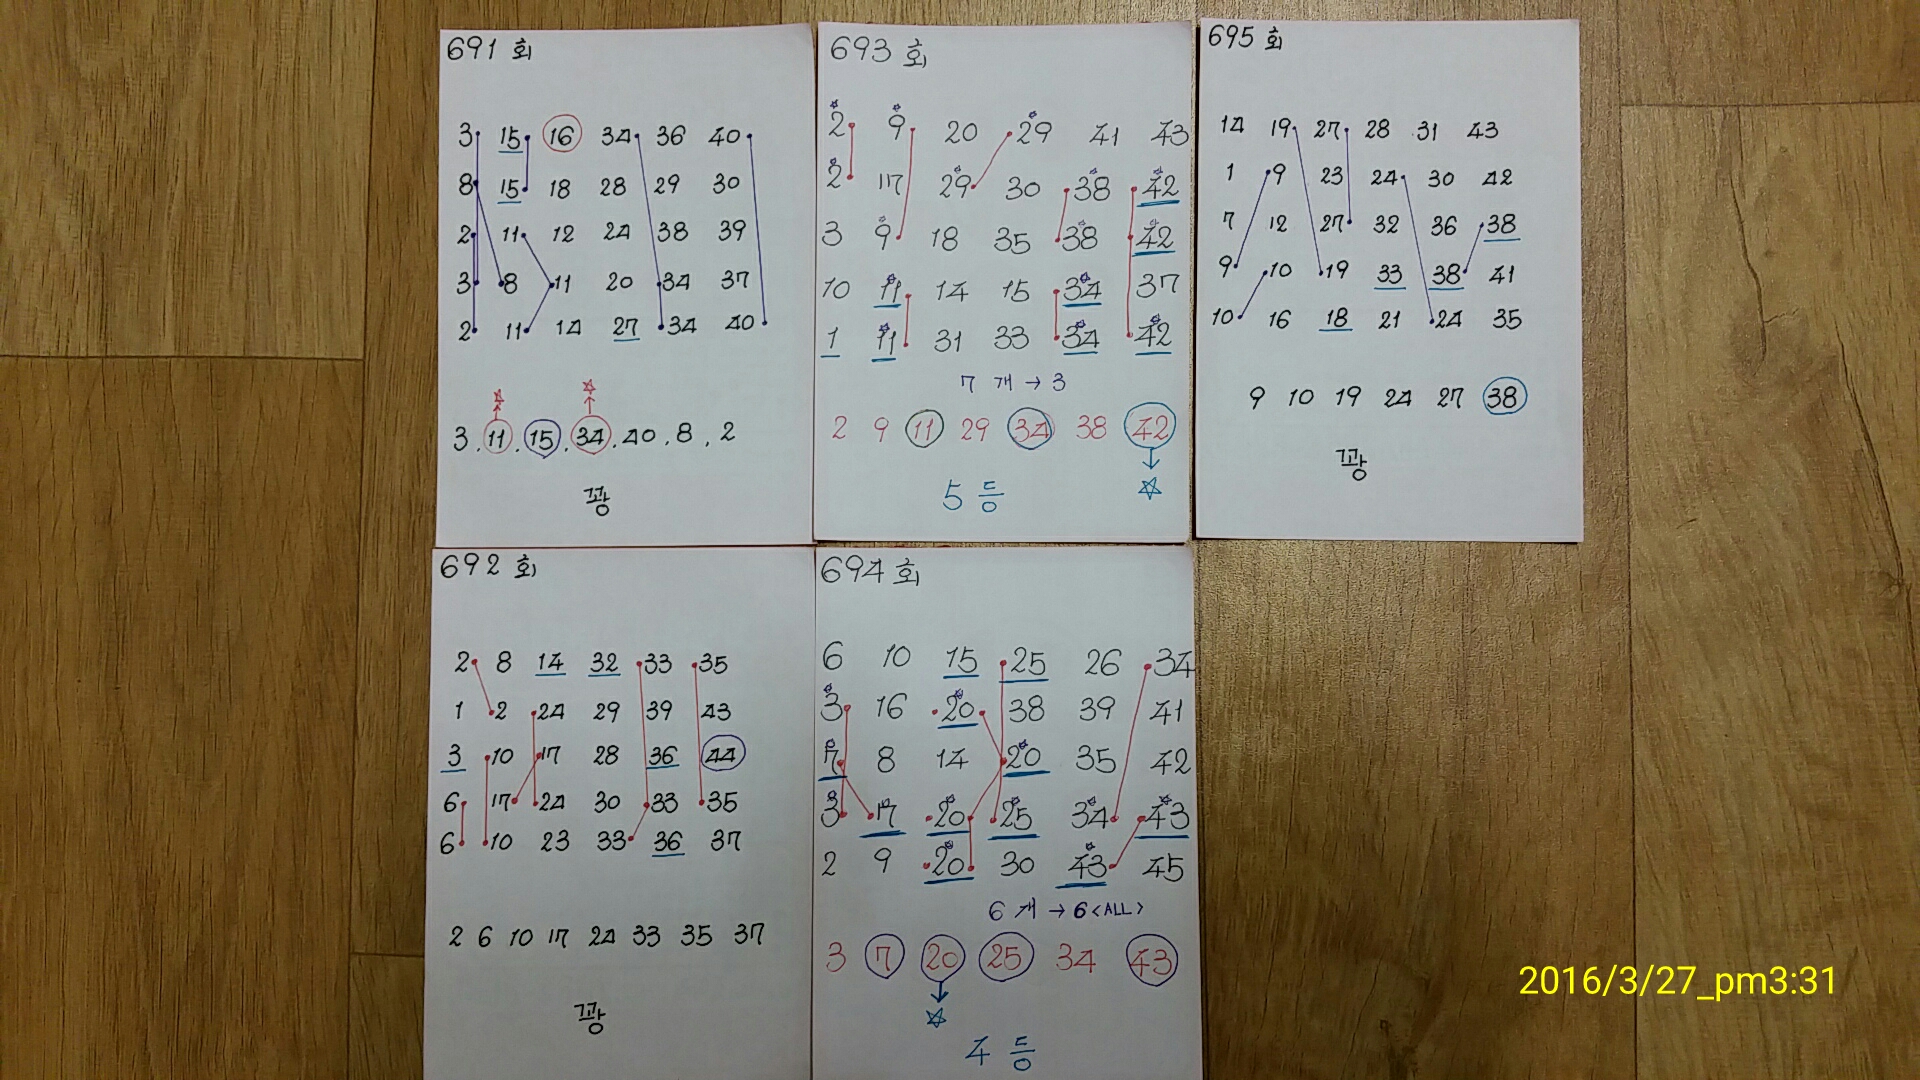 691 회
3 15 16 34 36 40
8 15 18 28 29 30
2 11 12 24 38 39
3 8 11 20 34 37
2 11 14 27 34 40
3 . 11 . 15 . 34 . 40 . 8 . 2
꽝
693 회
2 9 20 29 41 43
2 17 29 30 38 42
3 9 18 35 38 42
10 11 14 15 34 37
1 11 31 33 34 42
7 개 → 3
2 9 11 29 34 38 42
5 등
695 회
14 19 27 28 31 43
1 9 23 24 30 42
7 12 27 32 36 38
9 10 19 33 38 41
10 16 18 21 24 35
9 10 19 24 27 38
꽝
692 회
2 8 14 32 33 35
1 2 24 29 39 43
3 10 17 28 36 44
6 17 24 30 33 35
6 10 23 33 36 37
2 6 10 17 24 33 35 37
꽝
694 회
6 10 15 25 26 34
3 16 20 38 39 41
7 8 14 20 35 42
3 7 20 25 34 43
2 9 20 30 43 45
6 개 → 6 <ALL>
3 7 20 25 34 43
4 등
2016/3/27_pm3:31